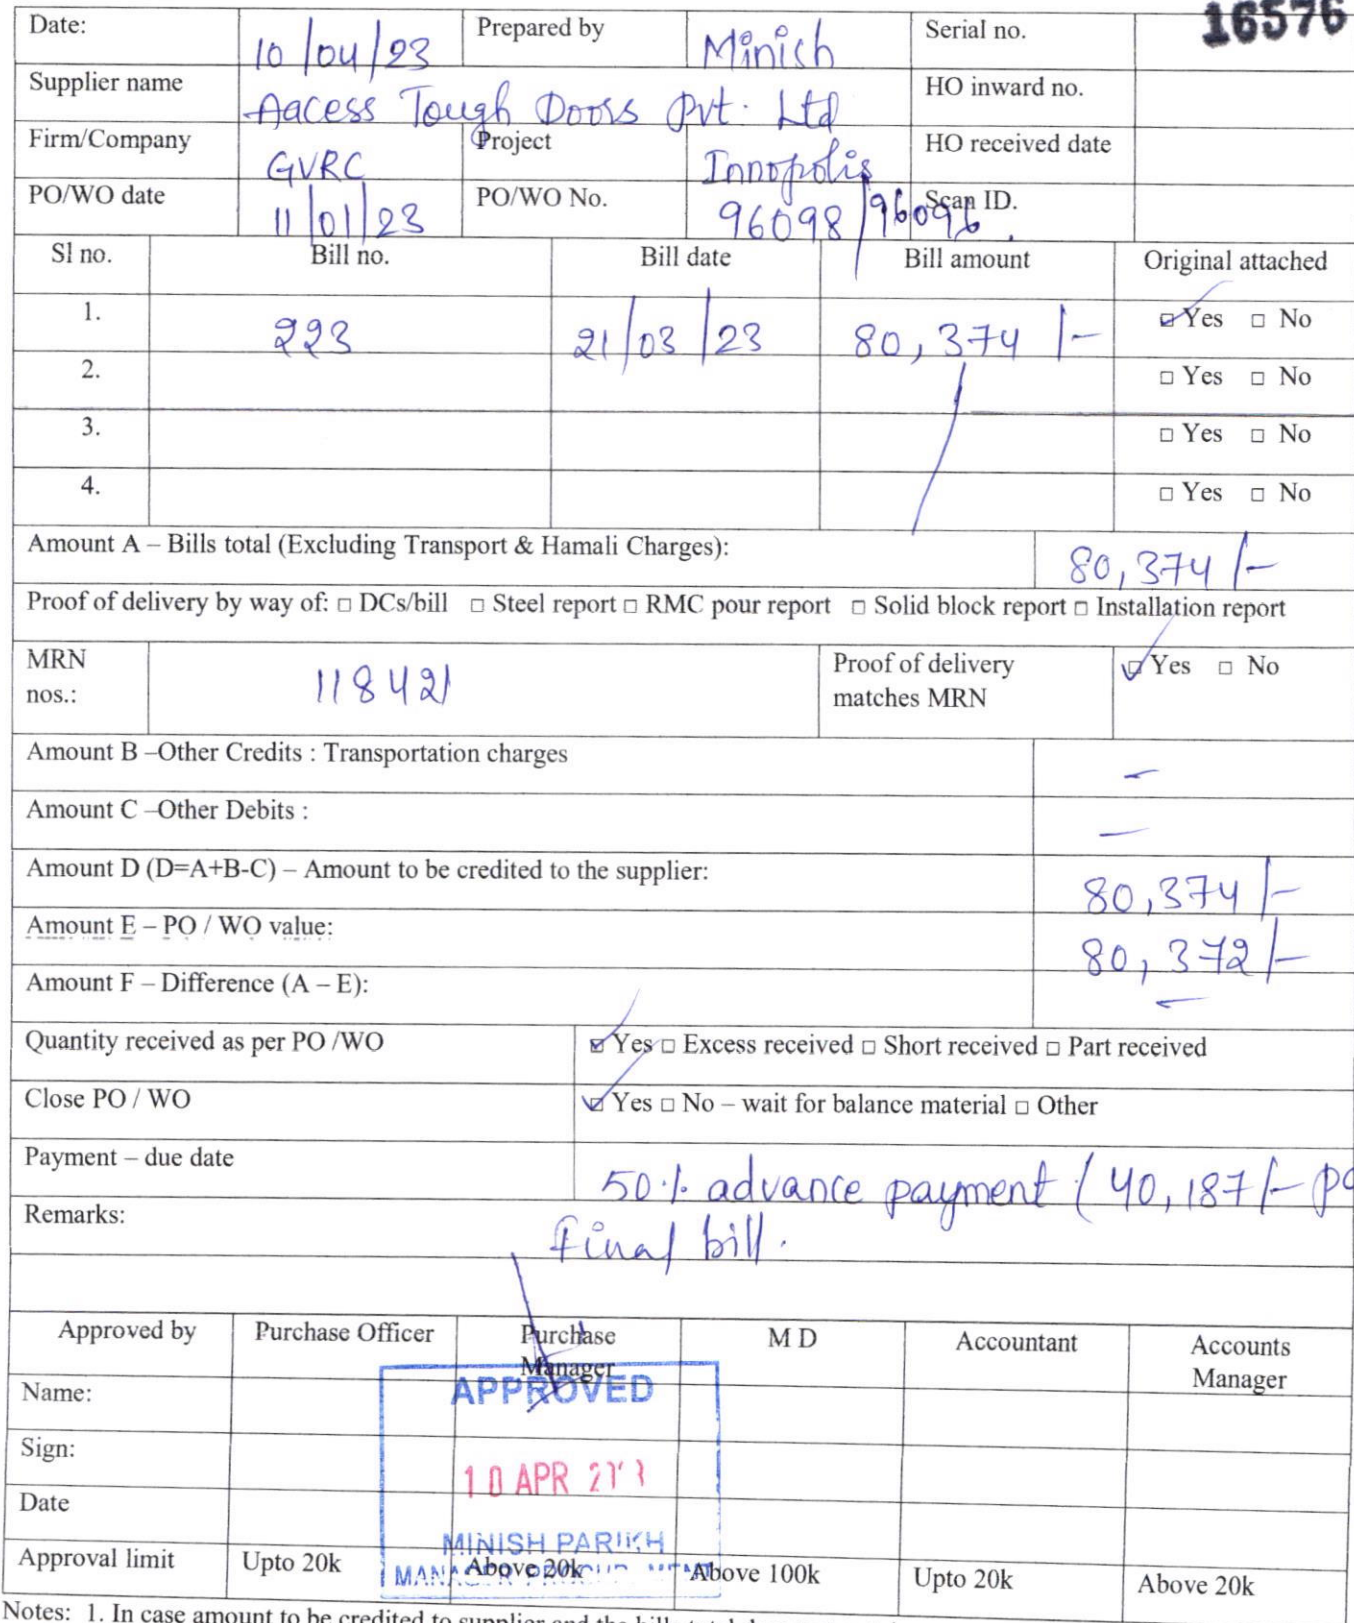 16576
Date: 10/04/23 Prepared by Minish Serial no.
Supplier name Aacess Tough Doors Pvt. Ltd HO inward no.
Firm/Company GVRC Project Innopolis HO received date
PO/WO date 11/01/23 PO/WO No. 96098/96096. Scan ID.
Sl no. Bill no. Bill date Bill amount Original attached
1. 223 21/03/23 80,374/- ☑ Yes □ No
2. □ Yes □ No
3. □ Yes □ No
4. □ Yes □ No
Amount A – Bills total (Excluding Transport & Hamali Charges): 80,374/-
Proof of delivery by way of: □ DCs/bill □ Steel report □ RMC pour report □ Solid block report □ Installation report
MRN nos.: 118421 Proof of delivery matches MRN ☑ Yes □ No
Amount B –Other Credits : Transportation charges –
Amount C –Other Debits : –
Amount D (D=A+B-C) – Amount to be credited to the supplier: 80,374/-
Amount E – PO / WO value: 80,372/-
Amount F – Difference (A – E): –
Quantity received as per PO /WO ☑ Yes □ Excess received □ Short received □ Part received
Close PO / WO ☑ Yes □ No – wait for balance material □ Other
Payment – due date 50% advance payment (40,187/- pa
Remarks: final bill.
Approved by Purchase Officer Purchase Manager M D Accountant Accounts Manager
Name:
APPROVED
Sign:
10 APR
Date
MINISH PARIKH
Approval limit Upto 20k Above 20k Above 100k Upto 20k Above 20k
Notes: 1. In case amount to be credited to supplier and the bills total